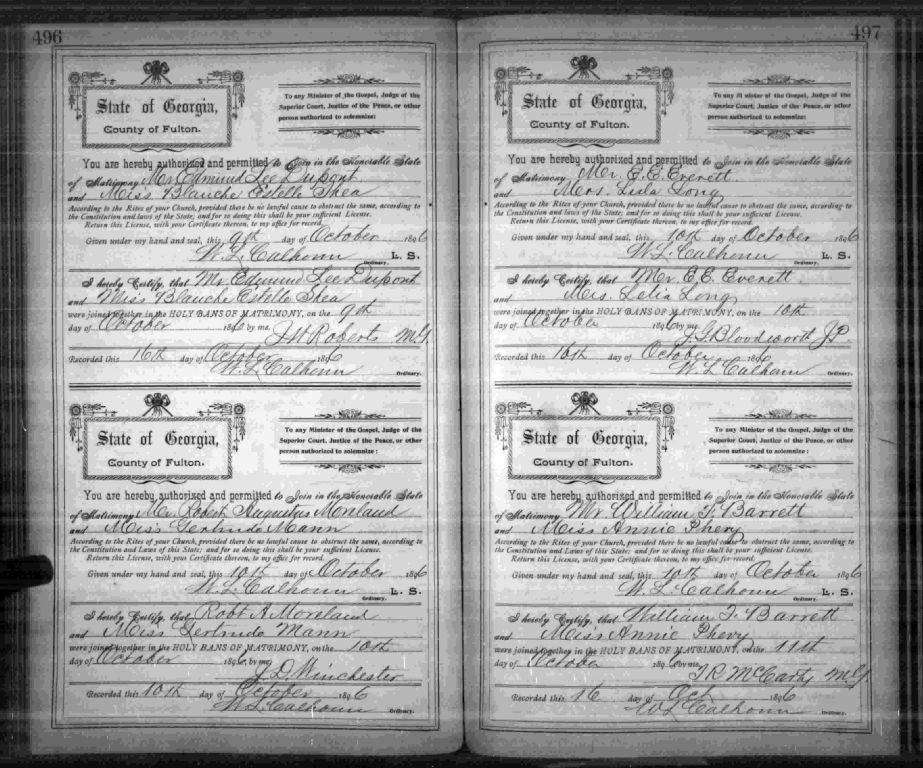 496
State of Georgia,
County of Fulton.
To any Minister of the Gospel, Judge of the
Superior Court, Justice of the Peace, or other
person authorized to solemnize:
You are hereby authorized and permitted to Join in the Honorable State
of Matrimony Mr. Edmund Lee Dupont
and Miss Blanche Estelle Shea
According to the Rites of your Church, provided there be no lawful cause to obstruct the same, according to
the Constitution and laws of this State; and for so doing this shall be your sufficient License.
Return this License, with your Certificate thereon, to my office for record.
Given under my hand and seal, this 9th day of October 1896
W. L. Calhoun L. S.
Ordinary.
I hereby Certify, that Mr Edmund Lee Dupont
and Miss Blanche Estelle Shea
were joined together in the HOLY BANS OF MATRIMONY, on the 9th
day of October 1896 by me. J H Roberts M.G.
Recorded this 16th day of October 1896
W. L. Calhoun Ordinary.
State of Georgia,
County of Fulton.
To any Minister of the Gospel, Judge of the
Superior Court, Justice of the Peace, or other
person authorized to solemnize:
You are hereby authorized and permitted to Join in the Honorable State
of Matrimony Mr. Robert Augustus Moreland
and Miss Gertrude Mann
According to the Rites of your Church, provided there be no lawful cause to obstruct the same, according to
the Constitution and Laws of this State; and for so doing this shall be your sufficient License.
Return this License, with your Certificate thereon, to my office for record.
Given under my hand and seal, this 10th day of October 1896
W. L. Calhoun L. S.
Ordinary.
I hereby Certify, that Robt A Moreland
and Miss Gertrude Mann
were joined together in the HOLY BANS OF MATRIMONY, on the 10th
day of October 1896, by me,
J. D. Winchester
Recorded this 10th day of October 1896
W. L. Calhoun Ordinary.
497
State of Georgia,
County of Fulton.
To any Minister of the Gospel, Judge of the
Superior Court, Justice of the Peace, or other
person authorized to solemnize:
You are hereby authorized and permitted to Join in the Honorable State
of Matrimony Mr. E. E. Everett
and Mrs. Lula Long
According to the Rites of your Church, provided there be no lawful cause to obstruct the same, according to
the Constitution and laws of the State; and for so doing this shall be your sufficient License.
Return this License, with your Certificate thereon, to my office for record.
Given under my hand and seal, this 10th day of October 1896
W. L. Calhoun L. S.
Ordinary.
I hereby Certify, that Mr E. E. Everett
and Mrs. Lelia Long
were joined together in the HOLY BANS OF MATRIMONY, on the 10th
day of October 1896 by me
J. G. Bloodworth J.P.
Recorded this 16th day of October 1896
W. L Calhoun Ordinary.
State of Georgia,
County of Fulton.
To any Minister of the Gospel, Judge of the
Superior Court, Justice of the Peace, or other
person authorized to solemnize:
You are hereby authorized and permitted to Join in the Honorable State
of Matrimony Mr. William T. Barrett
and Miss Annie Phevy
According to the Rites of your Church, provided there be no lawful cause to obstruct the same, according to
the Constitution and Laws of this State; and for so doing this shall be your sufficient License.
Return this License, with your Certificate thereon, to my office for record.
Given under my hand and seal, this 10th day of October 1896
W. L. Calhoun L. S.
Ordinary.
I hereby Certify, that William T. Barrett
and Miss Annie Phevy
were joined together in the HOLY BANS OF MATRIMONY, on the 11th
day of October 1896 by me,
T. R McCarty M.G.
Recorded this 16 day of Oct 1896
W L Calhoun Ordinary.